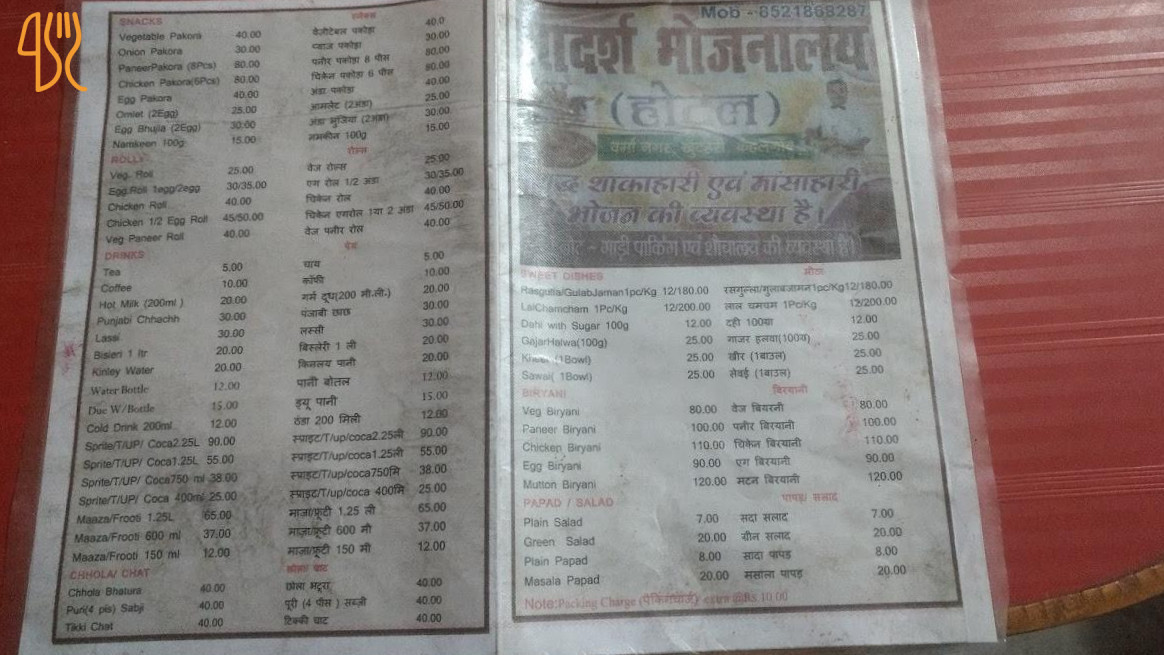 SNACKS स्नेक्स
Vegetable Pakora 40.00 वेजीटेबल पकोड़ा 40.0
Onion Pakora 30.00 प्याज पकोड़ा 30.00
PaneerPakora (8Pcs) 80.00 पनीर पकोड़ा 8 पीस 80.00
Chicken Pakora(6Pcs) 80.00 चिकेन पकोड़ा 6 पीस 80.00
Egg Pakora 40.00 अंडा पकोड़ा 40.00
Omlet (2Egg) 25.00 आमलेट (2अंडा) 25.00
Egg Bhujia (2Egg) 30.00 अंडा भुजिया (2अंडा) 30.00
Namkeen 100g 15.00 नमकीन 100g 15.00
ROLLY रोल्स
Veg. Roll 25.00 वेज रोल्स 25.00
Egg.Roll 1egg/2egg 30/35.00 एग रोल 1/2 अंडा 30/35.00
Chicken Roll 40.00 चिकेन रोल 40.00
Chicken 1/2 Egg Roll 45/50.00 चिकेन एगरोल 1या 2 अंडा 45/50.00
Veg Paneer Roll 40.00 वेज पनीर रोल 40.00
DRINKS पेय
Tea 5.00 चाय 5.00
Coffee 10.00 कॉफी 10.00
Hot Milk (200ml ) 20.00 गर्म दूध(200 मी.ली.) 20.00
Punjabi Chhachh 30.00 पंजाबी छाछ 30.00
Lassi 30.00 लस्सी 30.00
Bisleri 1 ltr 20.00 बिस्लेरी 1 ली 20.00
Kinley Water 20.00 किनलय पानी 20.00
Water Bottle 12.00 पानी बोतल 12.00
Due W/Bottle 15.00 ड्यू पानी 15.00
Cold Drink 200ml 12.00 ठंडा 200 मिली 12.00
Sprite/T/UP/ Coca2.25L 90.00 स्प्राइट/T/up/coca2.25ली 90.00
Sprite/T/UP/ Coca1.25L 55.00 स्प्राइट/T/up/coca1.25ली 55.00
Sprite/T/UP/ Coca750 ml 38.00 स्प्राइट/T/up/coca750मि 38.00
Sprite/T/UP/ Coca 400ml 25.00 स्प्राइट/T/up/coca 400मि 25.00
Maaza/Frooti 1.25L 65.00 माजा/फ्रूटी 1.25 ली 65.00
Maaza/Frooti 600 ml 37.00 माजा/फ्रूटी 600 मी 37.00
Maaza/Frooti 150 ml 12.00 माजा/फ्रूटी 150 मी 12.00
CHHOLA/ CHAT चाट
Chhola Bhatura 40.00 छोला भटूरा 40.00
Puri(4 pis) Sabji 40.00 पूरी (4 पीस ) सब्जी 40.00
Tikki Chat 40.00 टिक्की चाट 40.00
Mob - 8521868287
ादर्श भोजनालय
(होटल)
वर्मा नगर,
शाकाहारी एवं मांसाहारी
भोजन की व्यवस्था है।
नोट - गाड़ी पार्किंग एवं शौचालय की व्यवस्था है।
SWEET DISHES मीठा
Rasgulla/GulabJaman1pc/Kg 12/180.00 रसगुल्ला/गुलाबजामन1pc/Kg12/180.00
LalChamcham 1Pc/Kg 12/200.00 लाल चमचम 1Pc/Kg 12/200.00
Dahi with Sugar 100g 12.00 दही 100ग्रा 12.00
GajarHalwa(100g) 25.00 गाजर हलवा(100ग्रा) 25.00
(1Bowl) 25.00 खीर (1बाउल) 25.00
Sawai( 1Bowl) 25.00 सेवई (1बाउल) 25.00
BIRYANI बिरयानी
Veg Biryani 80.00 वेज बिरयनी 80.00
Paneer Biryani 100.00 पनीर बिरयानी 100.00
Chicken Biryani 110.00 चिकेन बिरयानी 110.00
Egg Biryani 90.00 एग बिरयानी 90.00
Mutton Biryani 120.00 मटन बिरयानी 120.00
PAPAD / SALAD पापड़/ सलाद
Plain Salad 7.00 सदा सलाद 7.00
Green Salad 20.00 ग्रीन सलाद 20.00
Plain Papad 8.00 सादा पापड़ 8.00
Masala Papad 20.00 मसाला पापड़ 20.00
Note:Packing Charge (पैकिंगचार्ज) extra @Rs.10.00